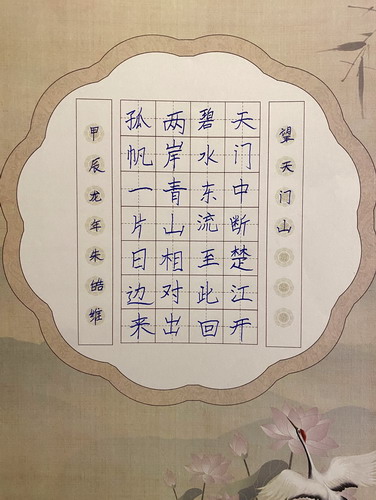 望天门山
天门中断楚江开
碧水东流至此回
两岸青山相对出
孤帆一片日边来
甲辰龙年朱皓维